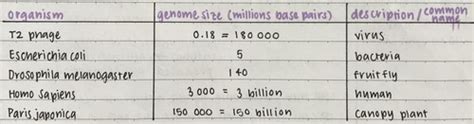 organism genome size (millions base pairs) description/common name
T2 phage 0.18 = 180 000 virus
Escherichia coli 5 bacteria
Drosophila melanogaster 140 fruit fly
Homo sapiens 3 000 = 3 billion human
Paris japonica 150 000 = 150 billion canopy plant